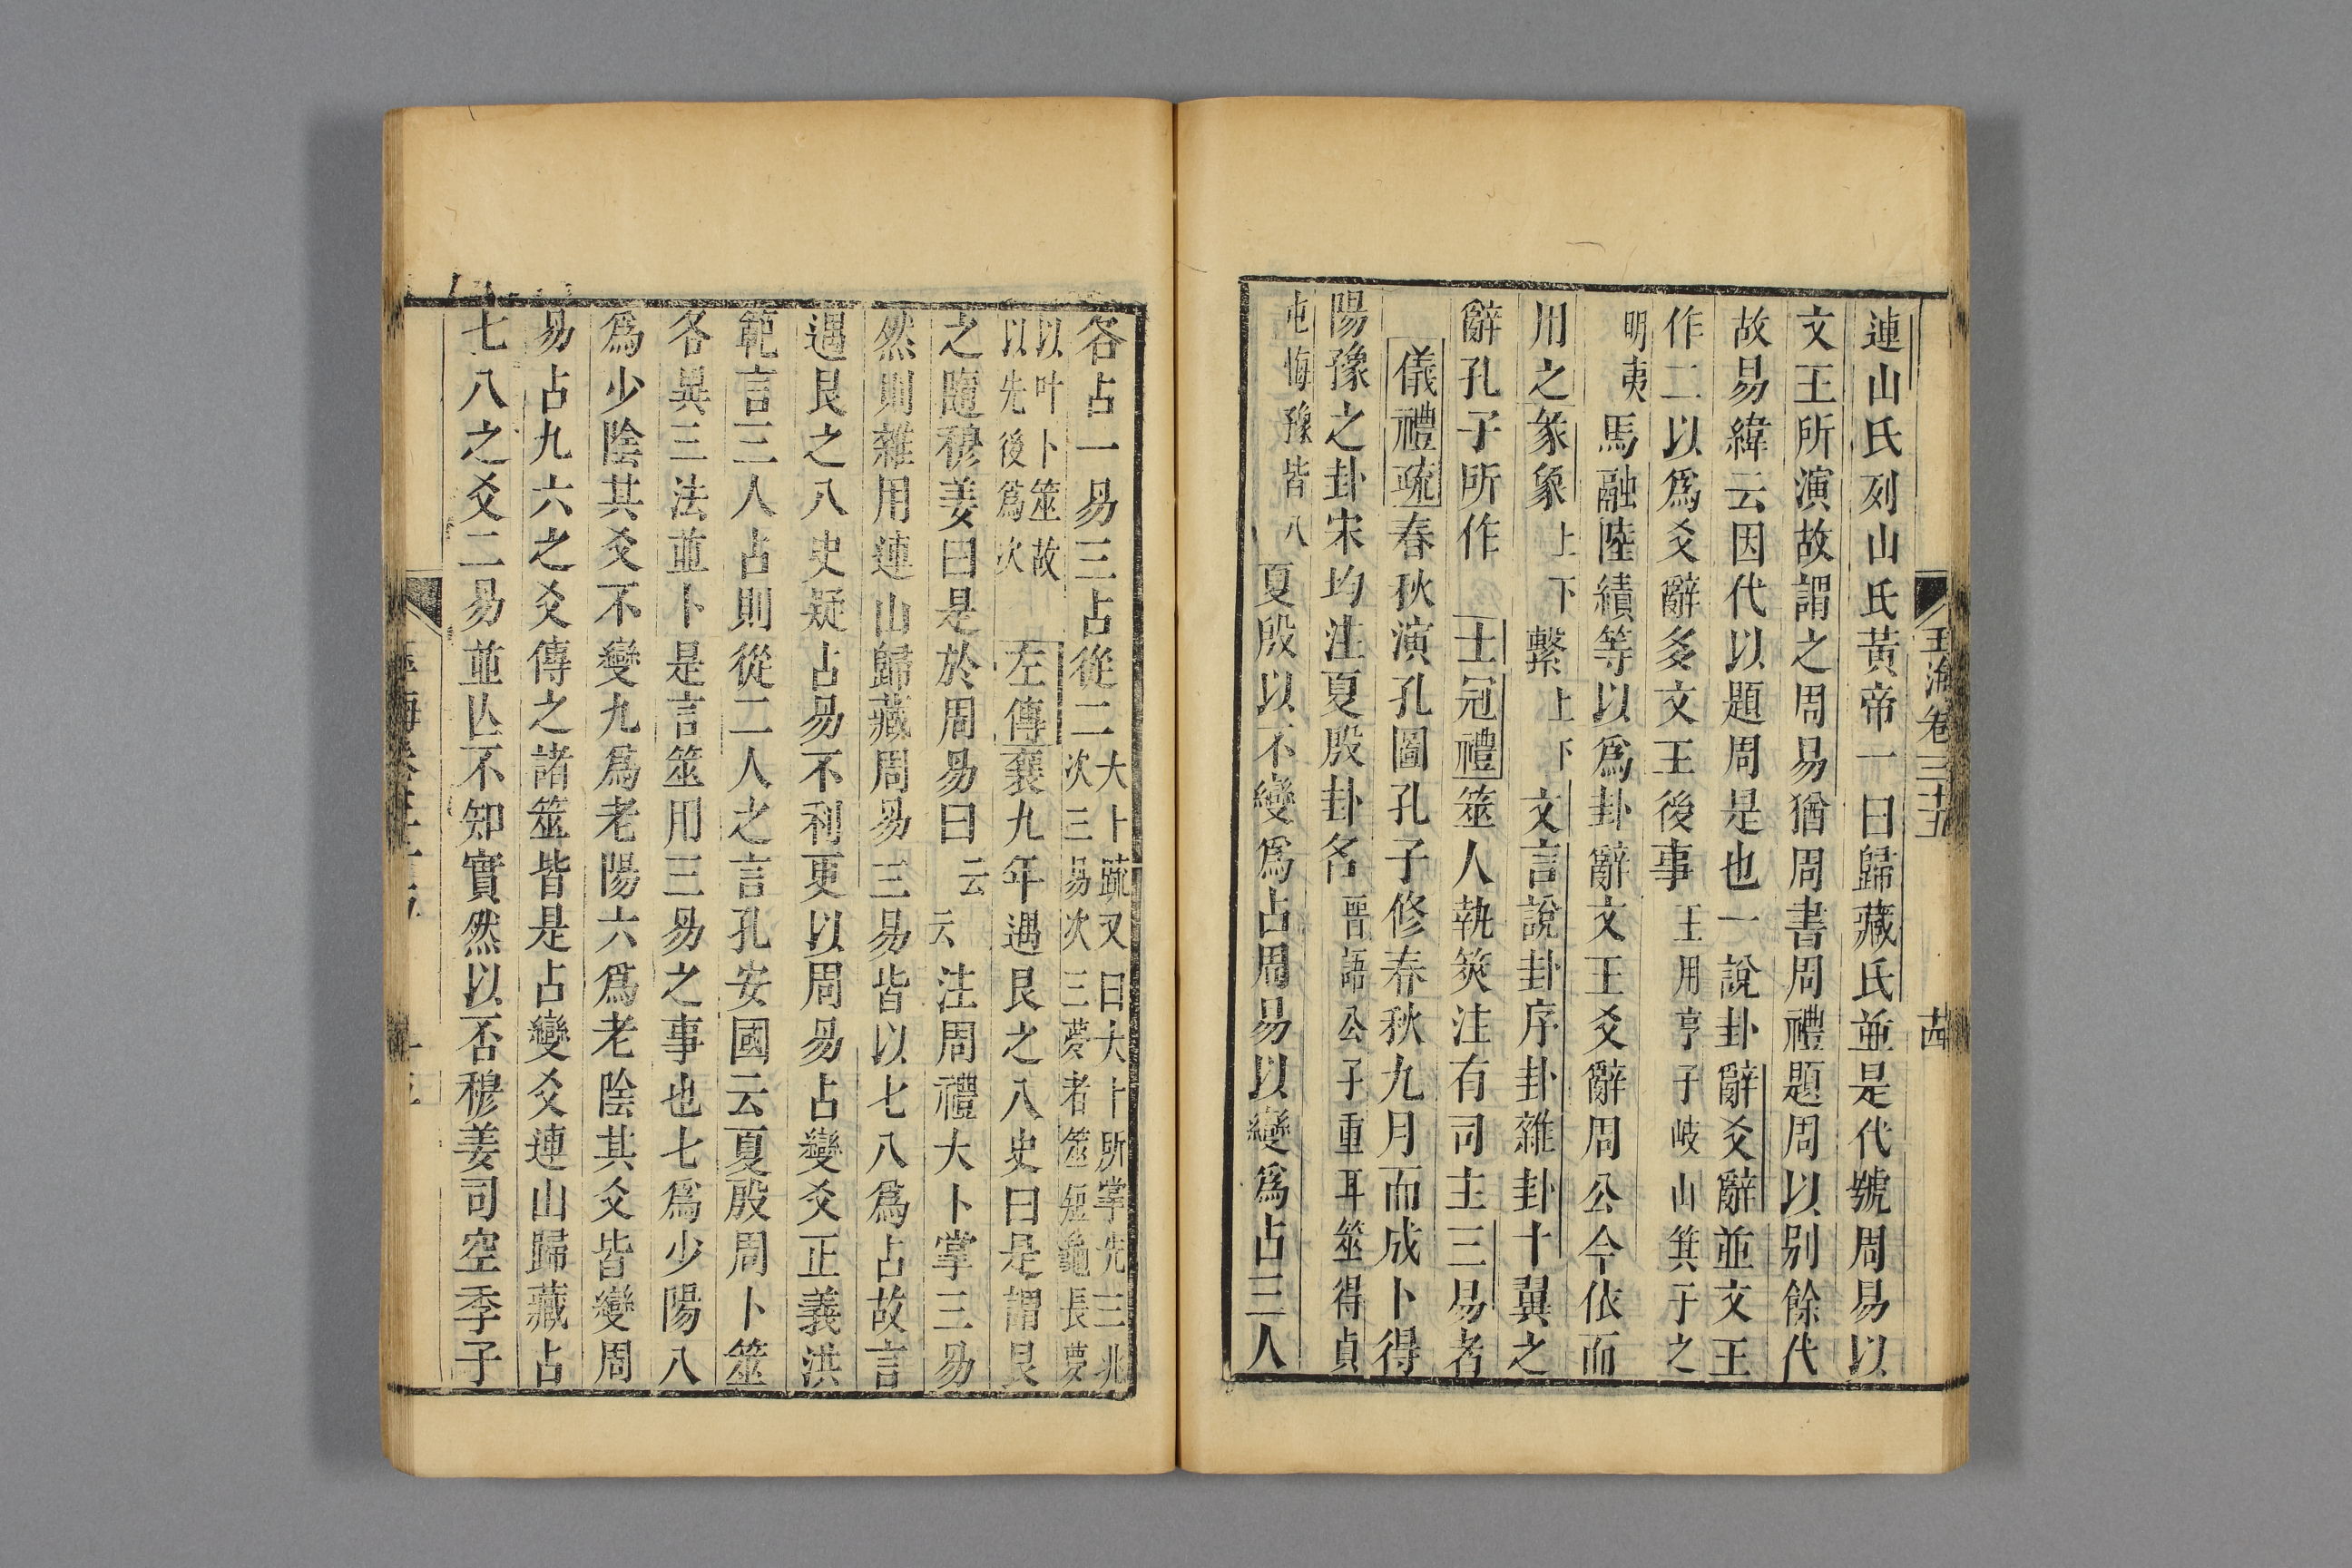 玉海卷三十五　　十四
連山氏列山氏黃帝一曰歸藏氏並是代號周易以
文王所演故謂之周易猶周書周禮題周以别餘代
故易緯云因代以題周是也一說卦辭爻辭並文王
作二以爲爻辭多文王後事王用亨于岐山箕子之
明夷馬融陸績等以爲卦辭文王爻辭周公今依而
用之彖象上下繫上下文言說卦序卦雜卦十翼之
辭孔子所作　士冠禮筮人執筴注有司主三易者
儀禮疏春秋演孔圖孔子修春秋九月而成卜得
陽豫之卦宋均注夏殷卦名晉語公子重耳筮得貞
屯悔豫皆八夏殷以不變爲占周易以變爲占三人
各占一易三占從二大卜疏又曰大卜所掌先三兆
次三易次三夢者筮短龜長夢
以叶卜筮故
以先後爲次　左傳襄九年遇艮之八史曰是謂艮
之隨穆姜曰是於周易曰云云注周禮大卜掌三易
然則雜用連山歸藏周易三易皆以七八爲占故言
遇艮之八史疑占易不利更以周易占變爻正義洪
範言三人占則從二人之言孔安國云夏殷周卜筮
各異三法並卜是言筮用三易之事也七爲少陽八
爲少陰其爻不變九爲老陽六爲老陰其爻皆變周
易占九六之爻傳之諸筮皆是占變爻連山歸藏占
七八之爻二易並亾不知實然以否穆姜司空季子